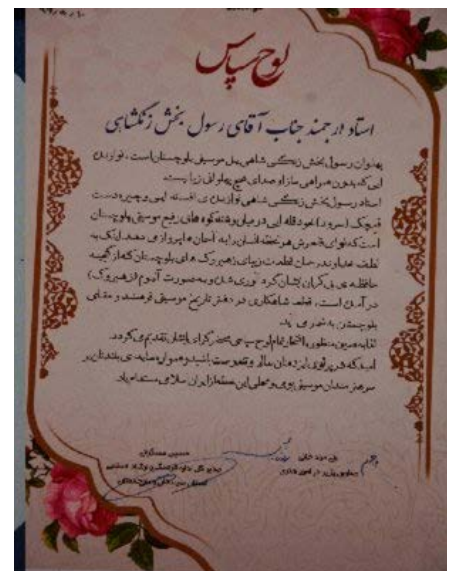 لوح سپاس
استاد ارجمند جناب آقای رسول بخش زنگشاهی
پهلوان رسول بخش زنگی شاهی یل موسیقی بلوچستان است، نوازنده
ایی که بدون همراهی ساز او صدای هیچ پهلوانی زیبا نیست.
استاد رسول بخش زنگی شاهی نوازنده ی افسانه ایی و چیره دست
قیچک (سرود) خود قله ایی در میان رشته کوه های رفیع موسیقی بلوچستان
است که نوای قیچکش هر لحظه انسان را به آسمان ها پرواز می دهد. اینک به
لطف خداوند رحمان قطعات زیبای زهیروک های بلوچستان که از گنجینه
حافظه ی بی کران ایشان گرد آوری شده و به صورت آلبوم (زهیروک)
در آمده است، قطعا شاهکاری در دفتر تاریخ موسیقی فرهنگ و
بلوچستان به شمار می آید.
لذا به همین منظور با افتخار تمام لوح سپاسی محضر گرای ایشان تقدیم می گردد.
امید که در پرتو ایزد منان سالم و تندرست باشید و همواره سایه ی بلندتان بر
سر هنرمندان موسیقی بومی و محلی این خطه از ایران اسلامی مستدام باد.
حسین مسگرانی
مدیر کل اداره فرهنگ و ارشاد اسلامی
معاون هنری